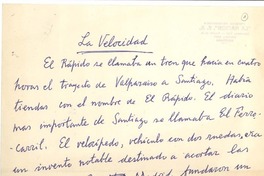 La Velocidad
El Rápido se llamaba un tren que hacía en cuatro
horas el trayecto de Valparaíso a Santiago. Había
tiendas con el nombre de El Rápido. El diario
mas importante de Santiago se llamaba El Ferro-
carril. El velocípedo, vehículo con dos ruedas, era
un invento notable destinado a acortar las
fundaron un